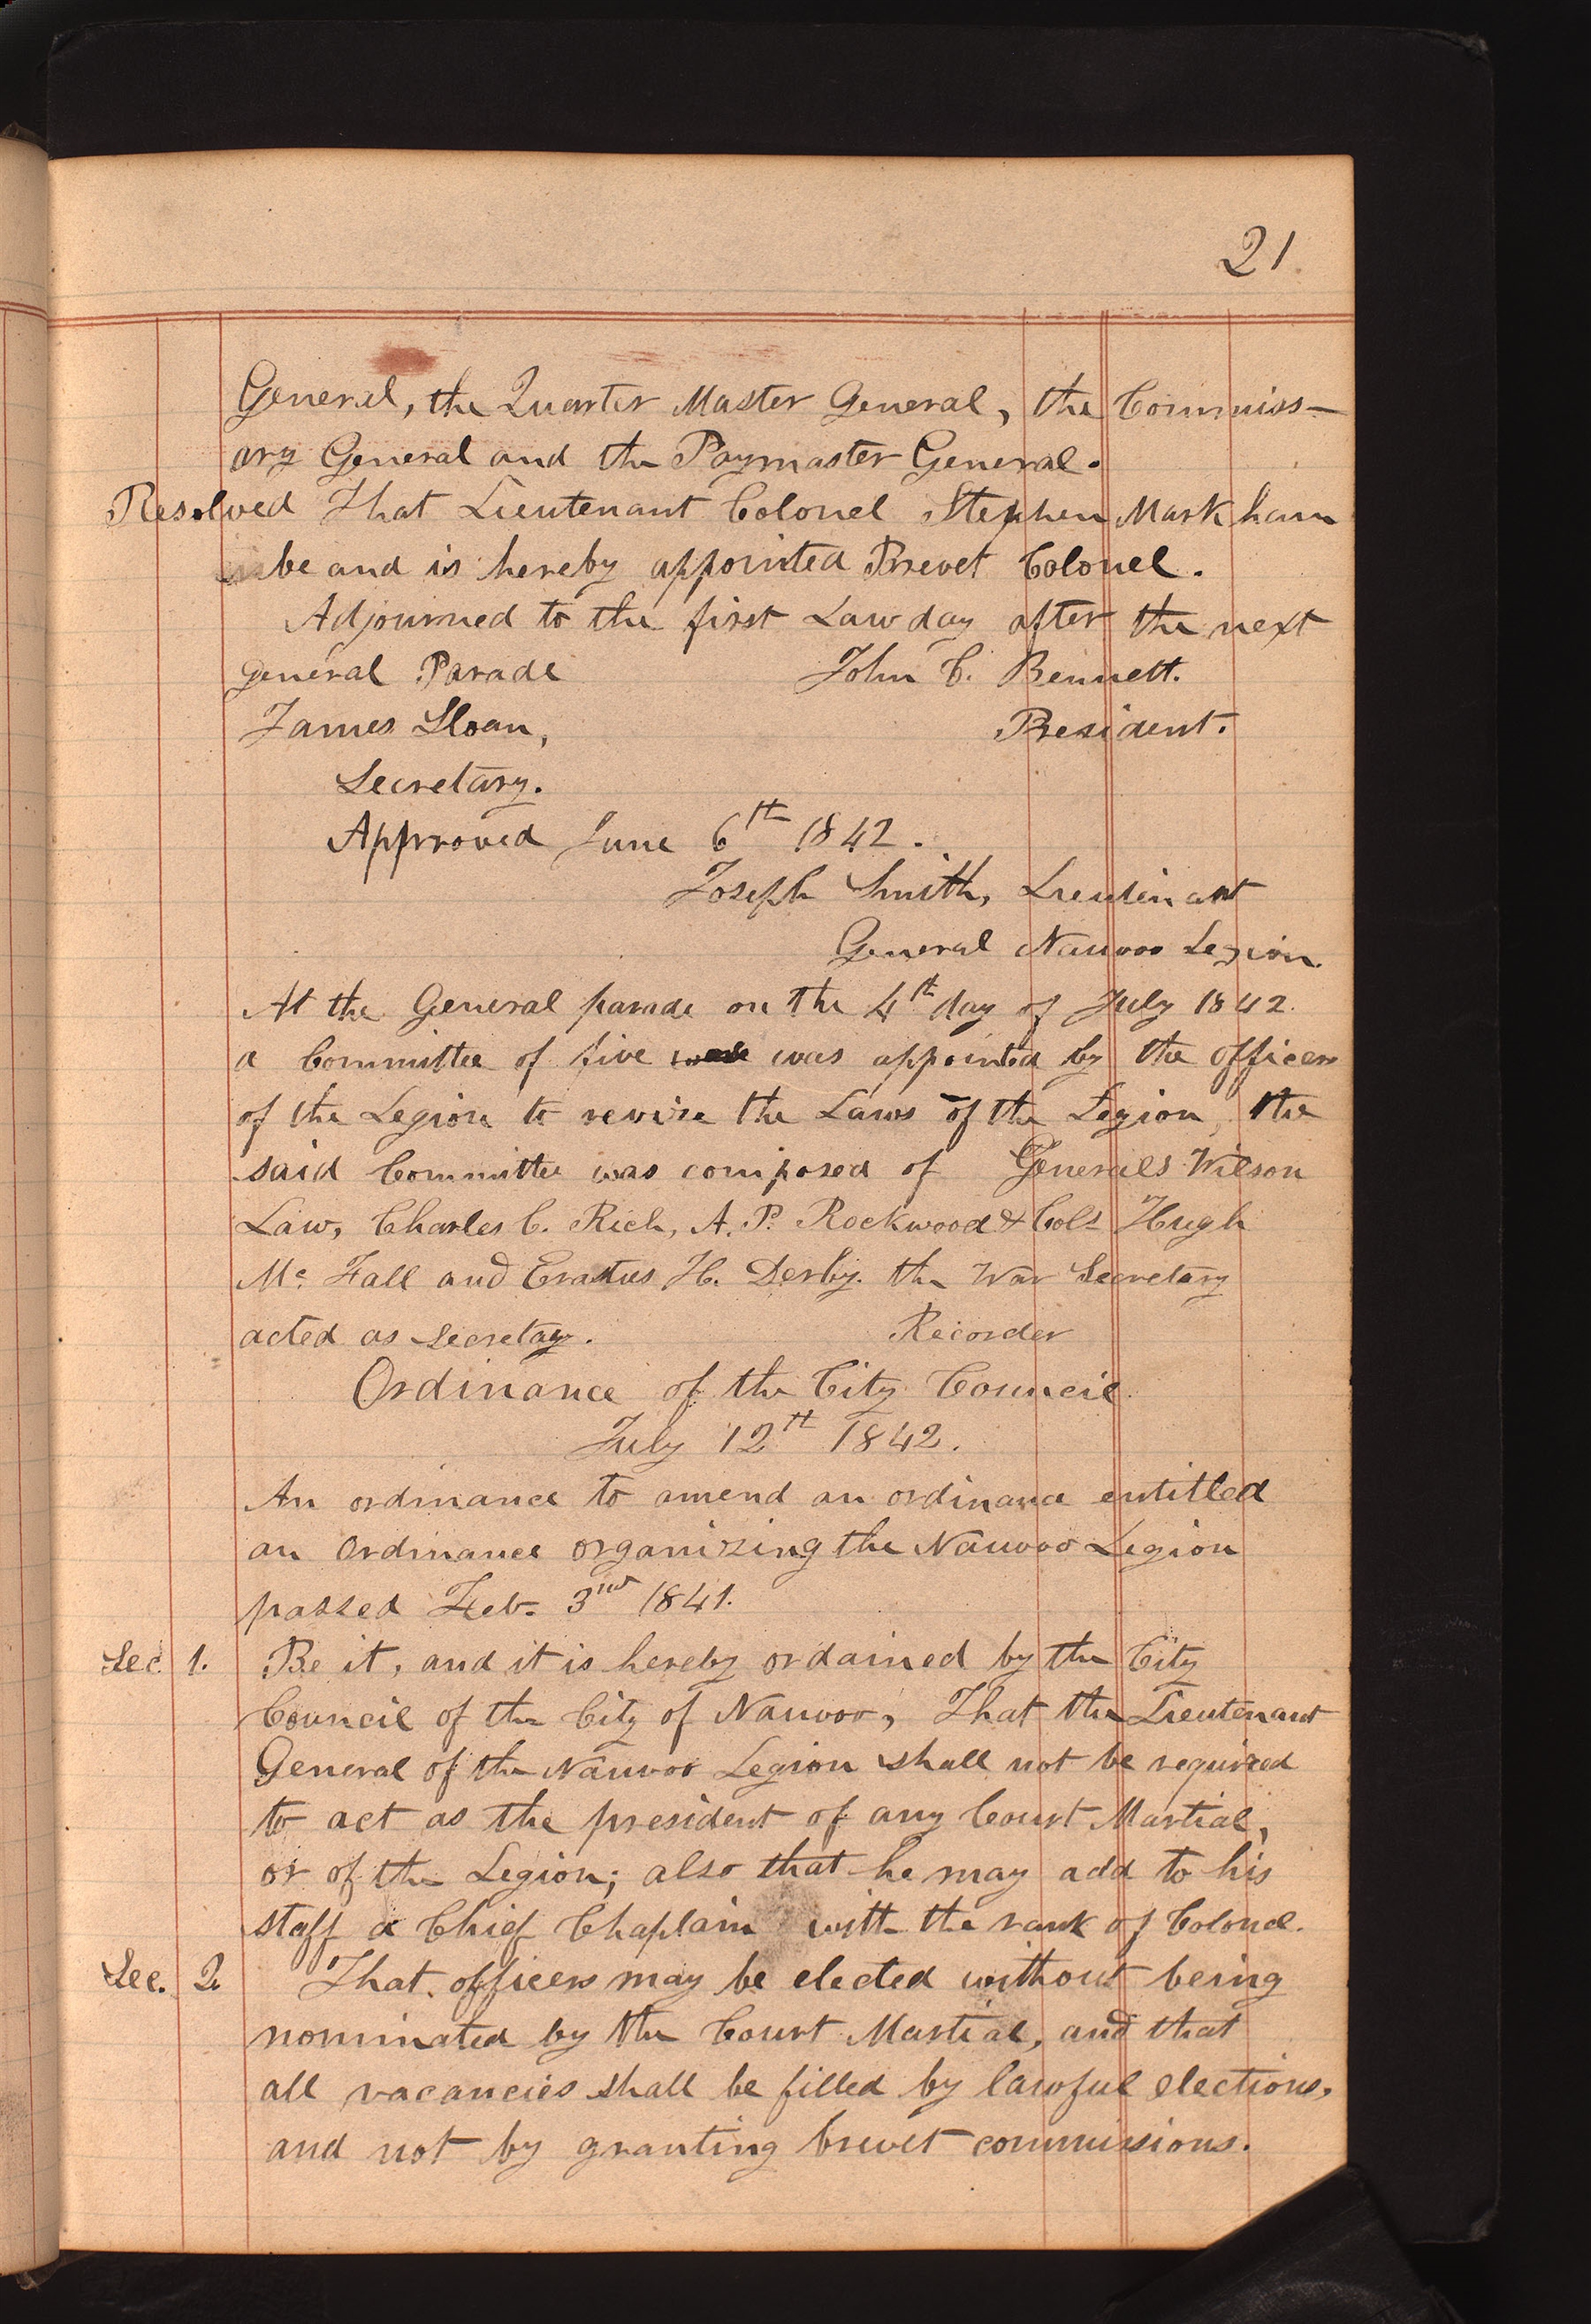 21
General, the Quarter Master General, the Commiss-
ary General and the Paymaster General.
Resolved That Lieutenant Colonel Stephen Markham
be and is hereby appointed Brevet Colonel.
Adjourned to the first Law day after the next
general Parade John C. Bennett.
James Sloan, President.
Secretary.
Approved June 6th 1842.
Joseph Smith, Lieutenant
General Nauvoo Legion.
At the General parade on the 4th day of July 1842.
a Committee of five was appointed by the officers
of the Legion to revise the Laws of the Legion, the
said Committee was composed of Generals Wilson
Law, Charles C. Rich, A. P. Rockwood & Cols Hugh
Mc Fall and Erastus H. Derby. the War Secretary
acted as secretay. Recorder
Ordinance of the City Council
July 12th 1842.
An ordinance to amend an ordinance entitled
an Ordinance organizing the Nauvoo Legion
passed Feb. 3rd 1841.
Sec. 1. Be it, and it is hereby ordained by the City
Council of the City of Nauvoo, That the Lieutenant
General of the Nauvoo Legion shall not be required
to act as the president of any Court Martial,
or of the Legion; also that he may add to his
staff a Chief Chaplain with the rank of Colonel.
Sec. 2. That officers may be elected without being
nominated by the Court Martial, and that
all vacancies shall be filled by lawful elections,
and not by granting brevet commissions.